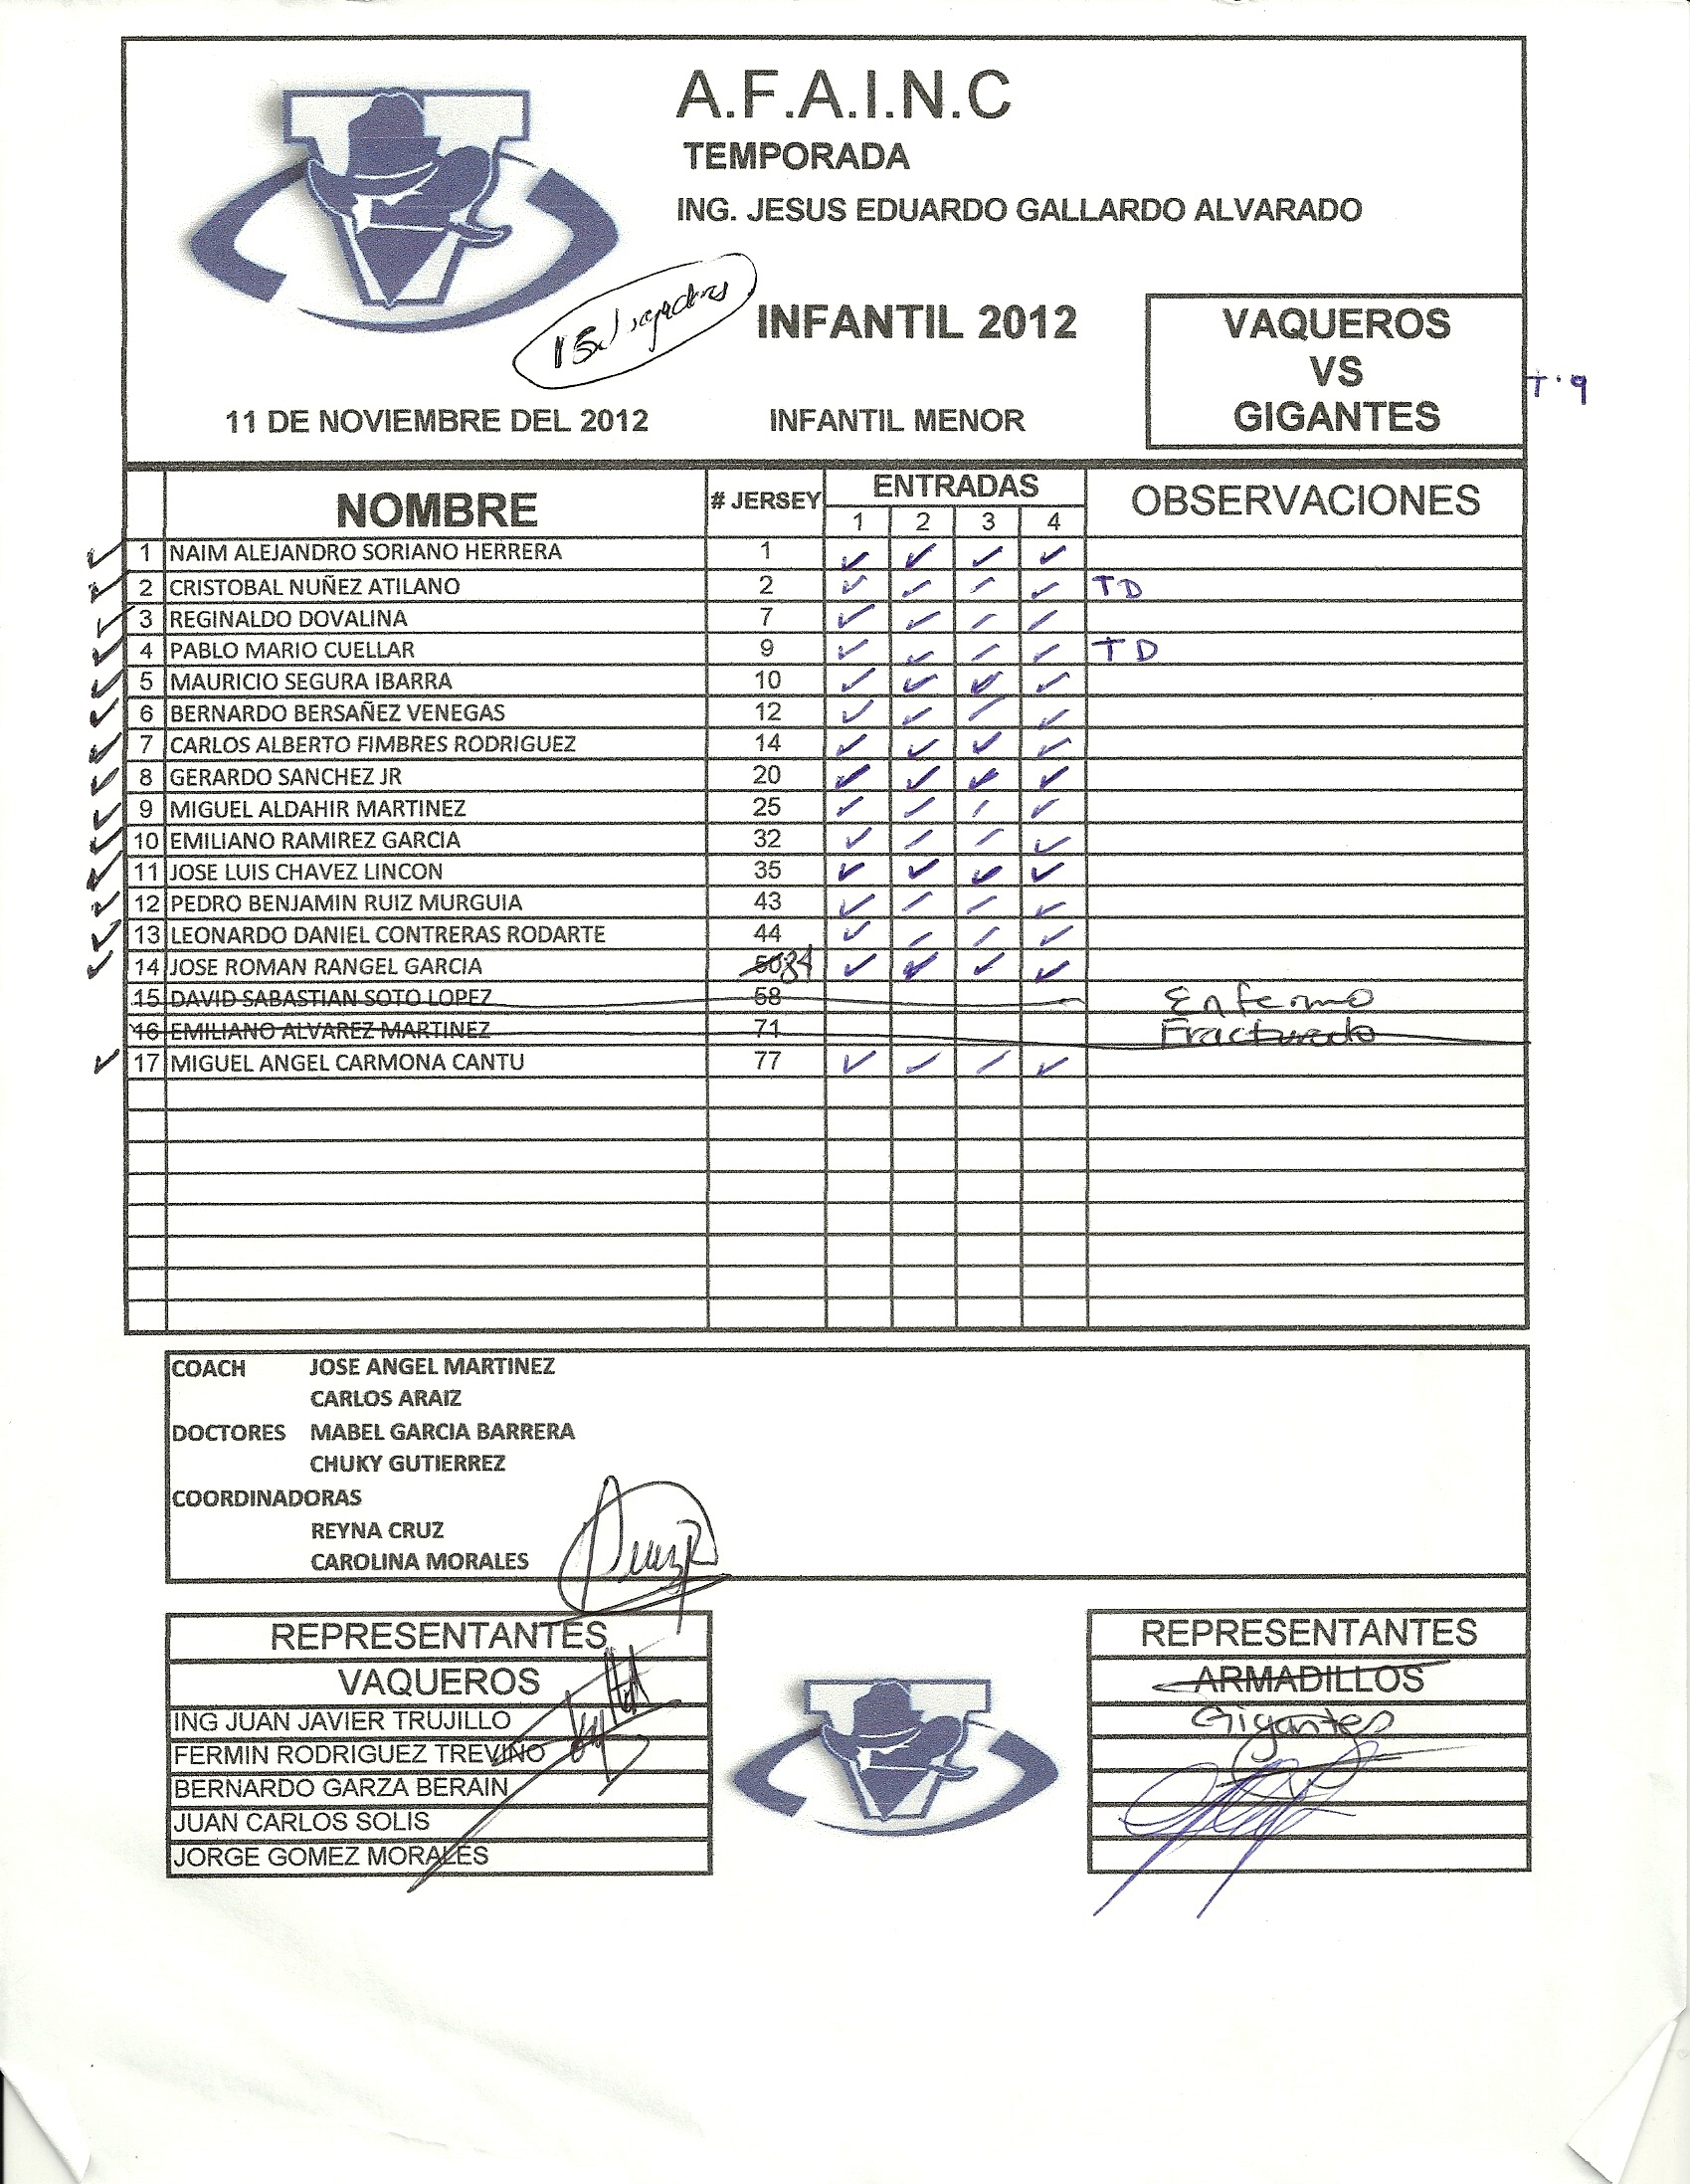 A.F.A.I.N.C
TEMPORADA
ING. JESUS EDUARDO GALLARDO ALVARADO
15 jugadores
INFANTIL 2012
VAQUEROS
VS
GIGANTES
T.9
11 DE NOVIEMBRE DEL 2012 INFANTIL MENOR
NOMBRE # JERSEY ENTRADAS OBSERVACIONES
1 2 3 4
1 NAIM ALEJANDRO SORIANO HERRERA 1 ✓ ✓ ✓ ✓
2 CRISTOBAL NUÑEZ ATILANO 2 ✓ ✓ ✓ ✓ TD
3 REGINALDO DOVALINA 7 ✓ ✓ ✓ ✓
4 PABLO MARIO CUELLAR 9 ✓ ✓ ✓ ✓ TD
5 MAURICIO SEGURA IBARRA 10 ✓ ✓ ✓ ✓
6 BERNARDO BERSAÑEZ VENEGAS 12 ✓ ✓ ✓ ✓
7 CARLOS ALBERTO FIMBRES RODRIGUEZ 14 ✓ ✓ ✓ ✓
8 GERARDO SANCHEZ JR 20 ✓ ✓ ✓ ✓
9 MIGUEL ALDAHIR MARTINEZ 25 ✓ ✓ ✓ ✓
10 EMILIANO RAMIREZ GARCIA 32 ✓ ✓ ✓ ✓
11 JOSE LUIS CHAVEZ LINCON 35 ✓ ✓ ✓ ✓
12 PEDRO BENJAMIN RUIZ MURGUIA 43 ✓ ✓ ✓ ✓
13 LEONARDO DANIEL CONTRERAS RODARTE 44 ✓ ✓ ✓ ✓
14 JOSE ROMAN RANGEL GARCIA 50 84 ✓ ✓ ✓ ✓
15 DAVID SABASTIAN SOTO LOPEZ 58 Enfermo
16 EMILIANO ALVAREZ MARTINEZ 71 Fracturado
17 MIGUEL ANGEL CARMONA CANTU 77 ✓ ✓ ✓ ✓
COACH JOSE ANGEL MARTINEZ
CARLOS ARAIZ
DOCTORES MABEL GARCIA BARRERA
CHUKY GUTIERREZ
COORDINADORAS
REYNA CRUZ
CAROLINA MORALES
REPRESENTANTES
VAQUEROS
ING JUAN JAVIER TRUJILLO
FERMIN RODRIGUEZ TREVIÑO
BERNARDO GARZA BERAIN
JUAN CARLOS SOLIS
JORGE GOMEZ MORALES
REPRESENTANTES
ARMADILLOS
Gigantes